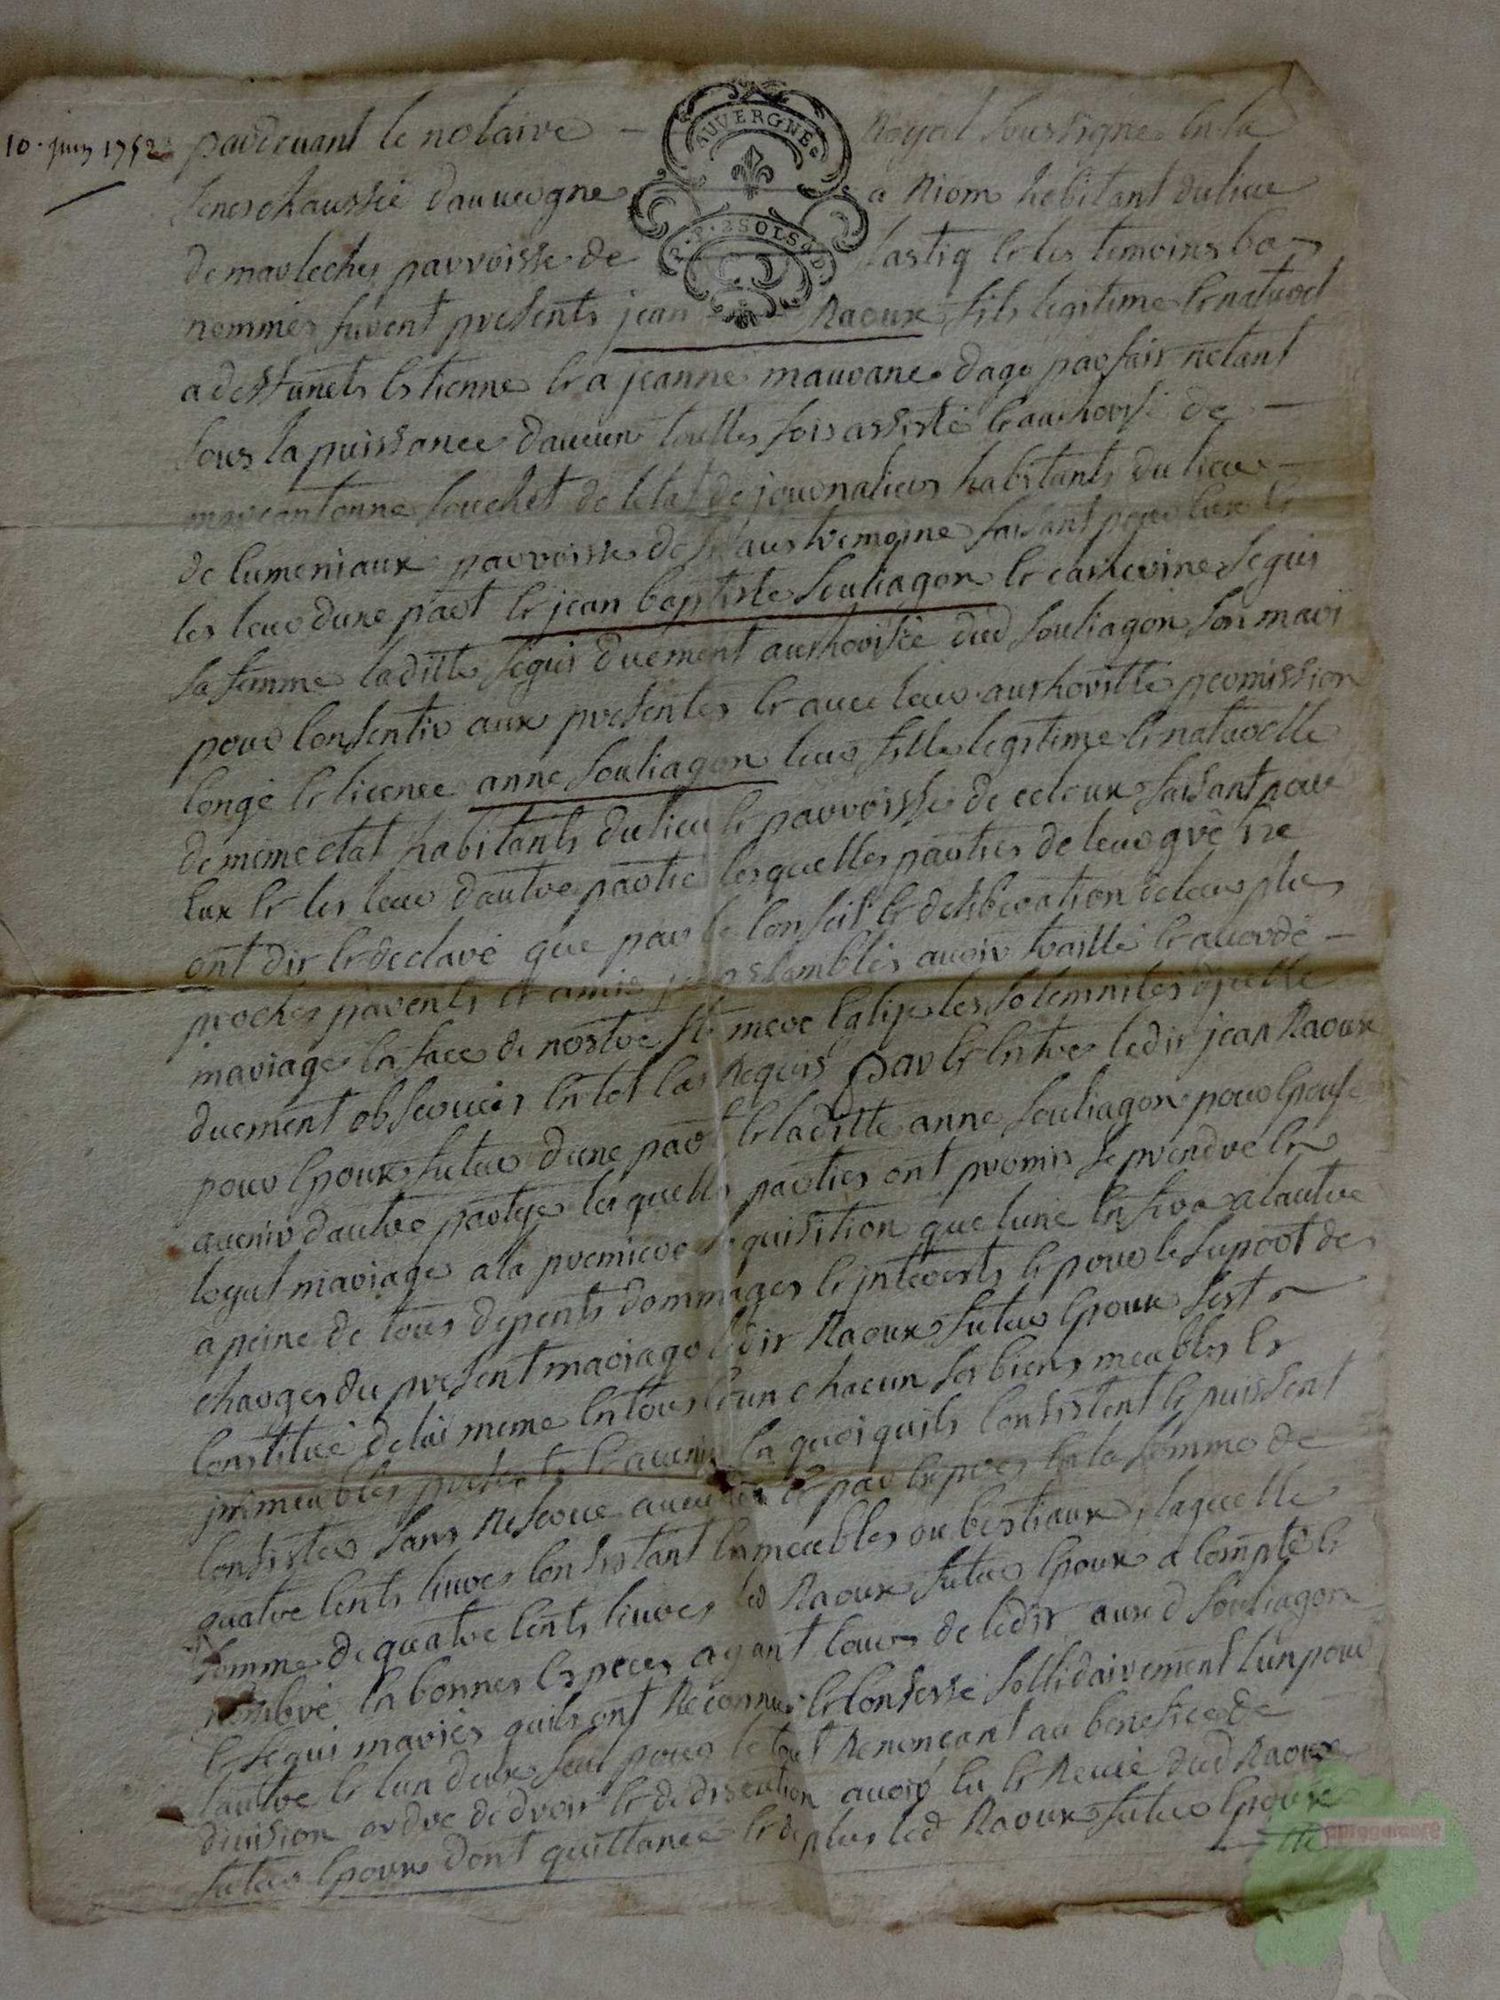 10. juin 1752 pardevant le notaire Royal soussigné en la
AUVERGNE
senechaussée dauvergne a Riom habitant du lieu
G. P. 2 SOLS 4 D.
de marleches parroisse de lastiq et les temoins bas
nommés furent presents jean Raoux fils legitime et naturel
a deffunts estienne et a jeanne mauvane dage parfait netant
sous la puissance daucun touttes fois assisté et authorisé de
marcantonne souchet de letat de journaliers habitants du lieu
de lumeniaux parroisse de st austremoine faisant pour eux et
les leur dune part et jean baptiste souliagon et catherine seguis
sa femme laditte seguis duement authorisée dud souliagon son mari
pour consentir aux presentes et avec leur authoritté permission
congé et licence anne souliagon leur fille legitime et naturelle
de meme etat habitants du lieu et parroisse de celoux faisant pour
eux et les leur dautre partie lesquelles parties de leur gré
ont dit et declaré que par le conseil et deliberation de leur plus
proches parents et amis jcy assemblés avoir traitté et accordé
mariage en face de nostre ste mere Eglise les solemnités dycelle
duement observées en tel cas Requis par et entre ledit jean Raoux
pour epoux futur dune part et laditte anne souliagon pour epouse
avenir dautre partye lesquelles parties ont promis se prendre en
legal mariage a la premiere Requisition que lune en fera a lautre
a peine de tous depents dommages et jnterests et pour le suport des
charges du present mariage ledit Raoux futur epoux sest
constitué de lui meme en tous et un chacun ses biens meubles et
jmmeubles presents et avenir en quoi quils consistent et puissent
consister sans Reserve aucune et par expres en la somme de
quatre cents livres consistant en meubles ou bestiaux, laquelle
somme de quatre cents livres led Raoux futur epoux a compté et
nombré en bonnes especes ayant cours de ledit aux d souliagon
et segui mariés quils ont Reconnu et confessé sollidairement lun pour
lautre et lun deux seul pour le tout Renonçant au benefice de
division ordre de droit et de discution avoir eu et Receu dud Raoux
futur epoux dont quittance et de plus led Raoux futur epoux